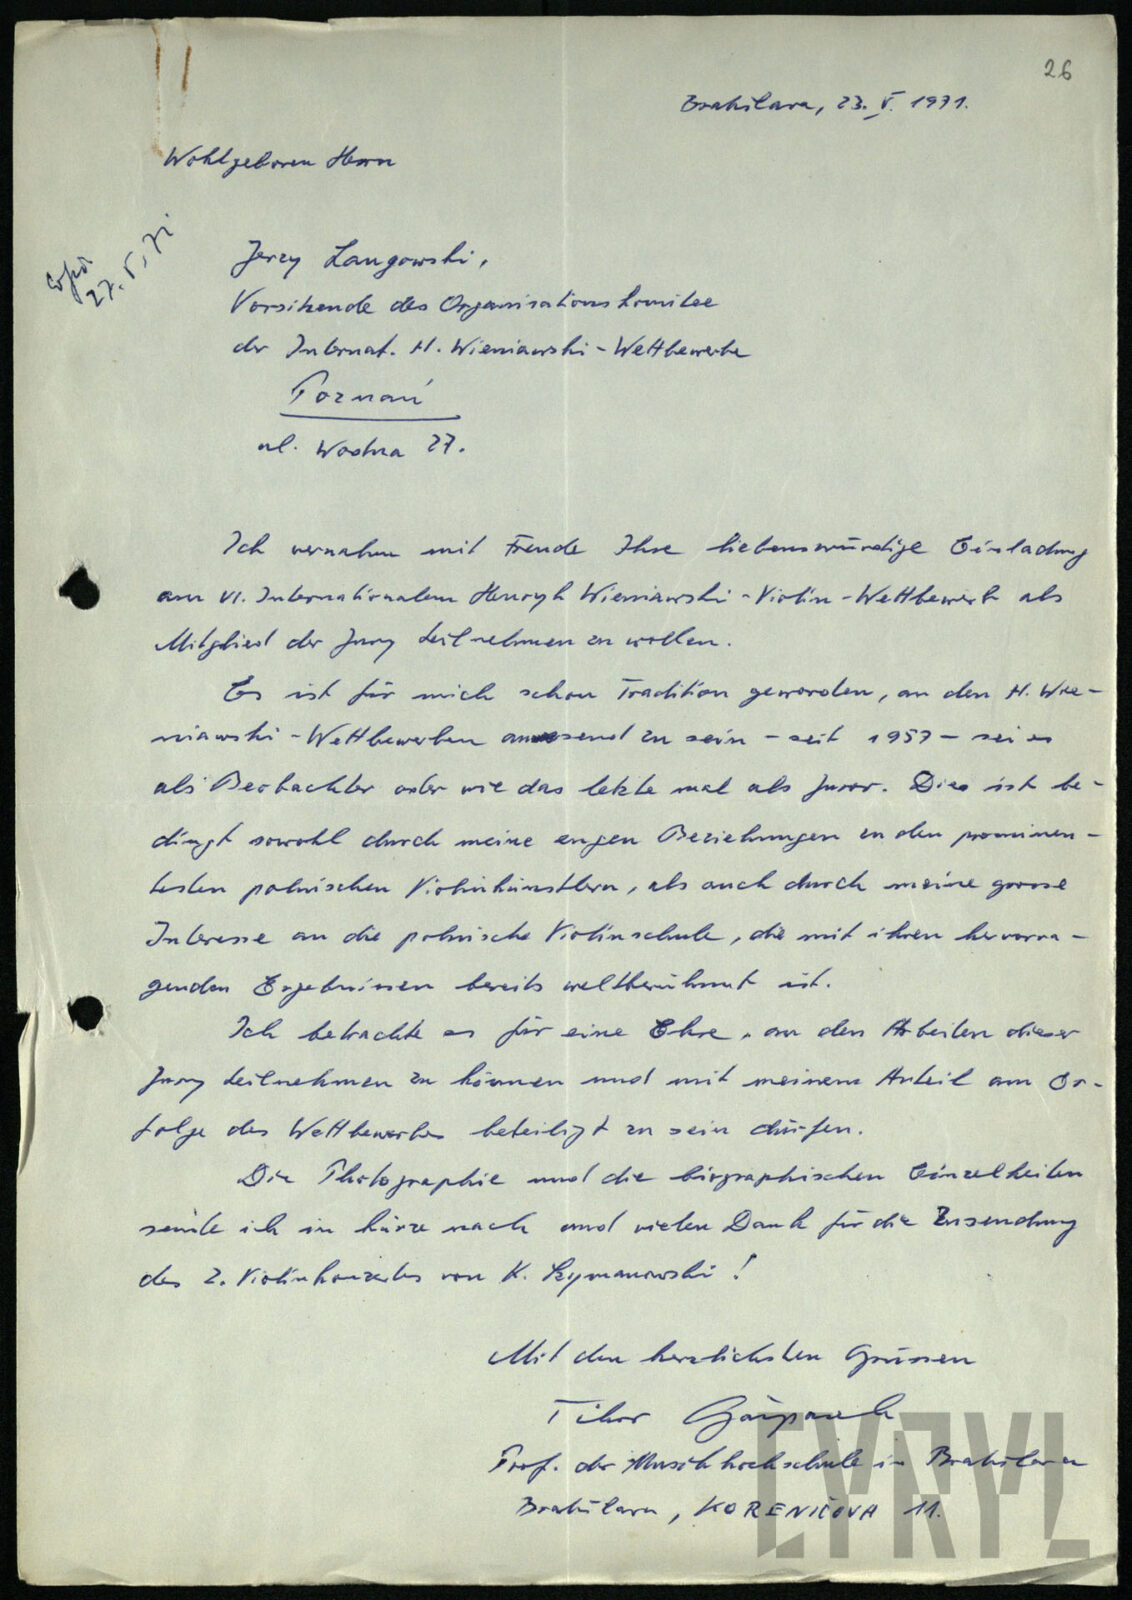 26
Bratislava, 23. V. 1971.
Wohlgeboren Herrn
27. V. 71
Jerzy Langowski,
Vorsitzende des Organisationskomitee
der Internat. H. Wieniawski-Wettbewerbe
Poznań
ul. Wodna 27.
Ich vernahm mit Freude Ihre liebenswürdige Einladung
am VI. Internationalem Henryk Wieniawski-Violin-Wettbewerb als
Mitglied der Jury teilnehmen zu wollen.
Es ist für mich schon Tradition geworden, an den H. Wie-
niawski-Wettbewerben anwesend zu sein - seit 1957 - sei es
als Beobachter oder wie das letzte mal als Juror. Dies ist be-
dingt sowohl durch meine engen Beziehungen zu den prominen-
testen polnischen Violinkünstlern, als auch durch meine grosse
Interesse an die polnische Violinschule, die mit ihren hervorra-
genden Ergebnissen bereits weltberühmt ist.
Ich betrachte es für eine Ehre, an den Arbeiten dieser
Jury teilnehmen zu können und mit meinem Anteil am Er-
folge des Wettbewerbes beteiligt zu sein dürfen.
Die Photographie und die biographischen Einzelheiten
sende ich in kürze nach und vielen Dank für die Zusendung
des 2. Violinkonzertes von K. Szymanowski!
Mit den herzlichsten Grüssen
Tibor Gašparek
Prof. der Musikhochschule in Bratislava
Bratislava, KORENIČOVA 11.
CYRYL